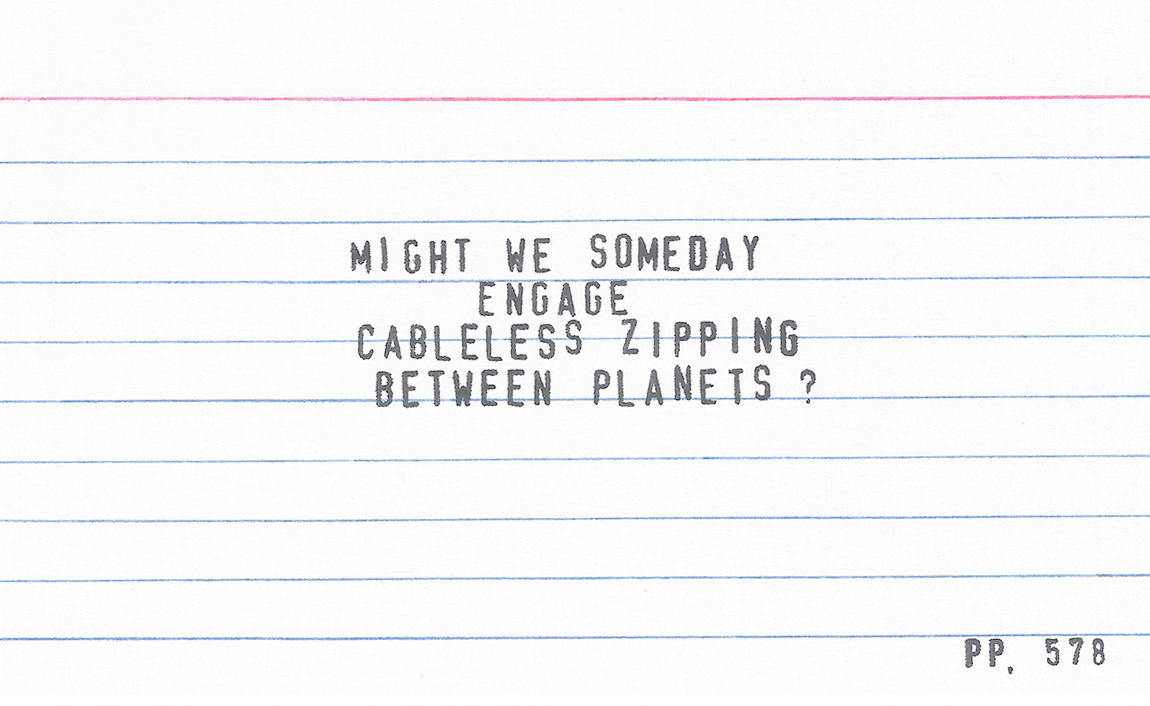 MIGHT WE SOMEDAY
ENGAGE
CABLELESS ZIPPING
BETWEEN PLANETS ?
PP. 578